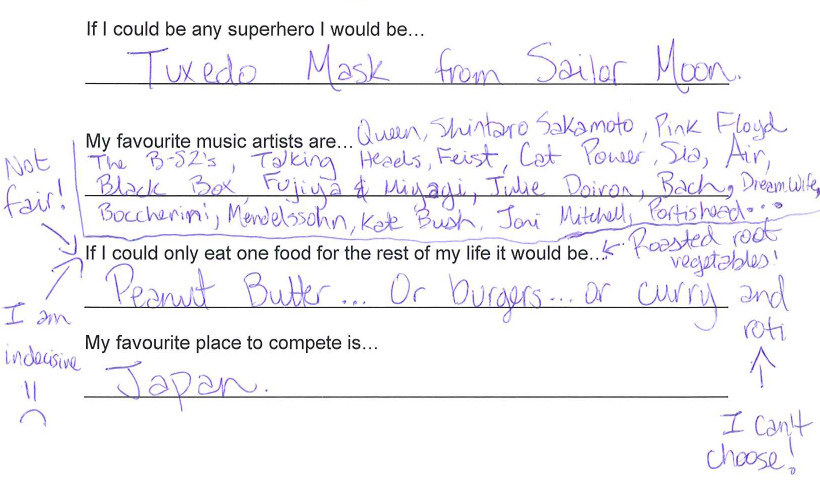 If I could be any superhero I would be...
Tuxedo Mask from Sailor Moon.
My favourite music artists are... Queen, Shintaro Sakamoto, Pink Floyd
The B-52's, Talking Heads, Feist, Cat Power, Sia, Air,
Black Box, Fujiya & Miyagi, Julie Doiron, Bach, Dream Wife,
Boccherini, Mendelssohn, Kate Bush, Joni Mitchell, Portishead...
Not
fair!
If I could only eat one food for the rest of my life it would be...
Roasted root
vegetables!
Peanut Butter... Or burgers... or curry and
roti
I am
indecisive
My favourite place to compete is...
Japan.
I can't
choose!